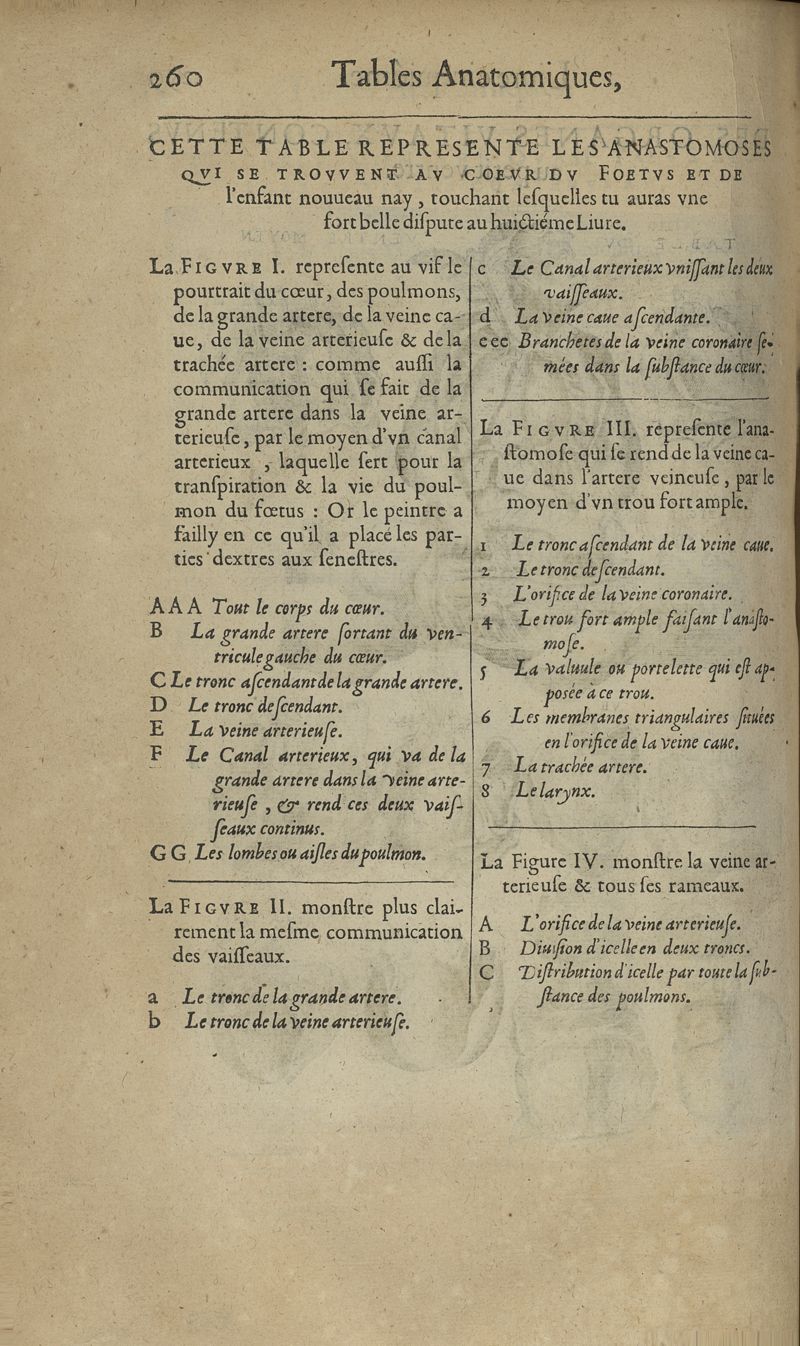 260 Tables Anatomiques,
CETTE TABLE REPRESENTE LES ANASTOMOSES
QVI SE TROVVENT AV COEVR DV FOETVS ET DE
l'enfant nouueau nay, touchant leſquelles tu auras vne
fort belle diſpute au huictiéme Liure.
La FIGVRE I. repreſente au vif le
pourtrait du cœur, des poulmons,
de la grande artere, de la veine ca-
ue, de la veine arterieuſe & de la
trachée artere : comme auſſi la
communication qui ſe fait de la
grande artere dans la veine ar-
terieuſe, par le moyen d'vn canal
arterieux, laquelle ſert pour la
tranſpiration & la vie du poul-
mon du fœtus : Or le peintre a
failly en ce qu'il a placé les par-
ties dextres aux feneſtres.
A A A Tout le corps du cœur.
B La grande artere ſortant du ven-
tricule gauche du cœur.
C Le tronc aſcendant de la grande artere.
D Le tronc deſcendant.
E La veine arterieuſe.
F Le Canal arterieux, qui va de la
grande artere dans la veine arte-
rieuſe, & rend ces deux vaiſ-
ſeaux continus.
G G Les lombes ou aiſles du poulmon.
La FIGVRE II. monſtre plus clai-
rement la meſme communication
des vaiſſeaux.
a Le tronc de la grande artere.
b Le tronc de la veine arterieuſe.
c Le Canal arterieux vniſſant les deux
vaiſſeaux.
d La veine caue aſcendante.
e e e Branchetes de la veine coronaire ſe-
mées dans la ſubſtance du cœur.
La FIGVRE III. repreſente l'ana-
ſtomoſe qui ſe rend de la veine ca-
ue dans l'artere veineuſe, par le
moyen d'vn trou fort ample.
1 Le tronc aſcendant de la veine caue.
2 Le tronc deſcendant.
3 L'orifice de la veine coronaire.
4 Le trou fort ample faiſant l'anaſto-
moſe.
5 La valuule ou portelette qui eſt ap-
poſée à ce trou.
6 Les membranes triangulaires ſituées
en l'orifice de la veine caue.
7 La trachée artere.
8 Le larynx.
La Figure IV. monſtre la veine ar-
terieuſe & tous ſes rameaux.
A L'orifice de la veine arterieuſe.
B Diuiſion d'icelle en deux troncs.
C Diſtribution d'icelle par toute la ſub-
ſtance des poulmons.